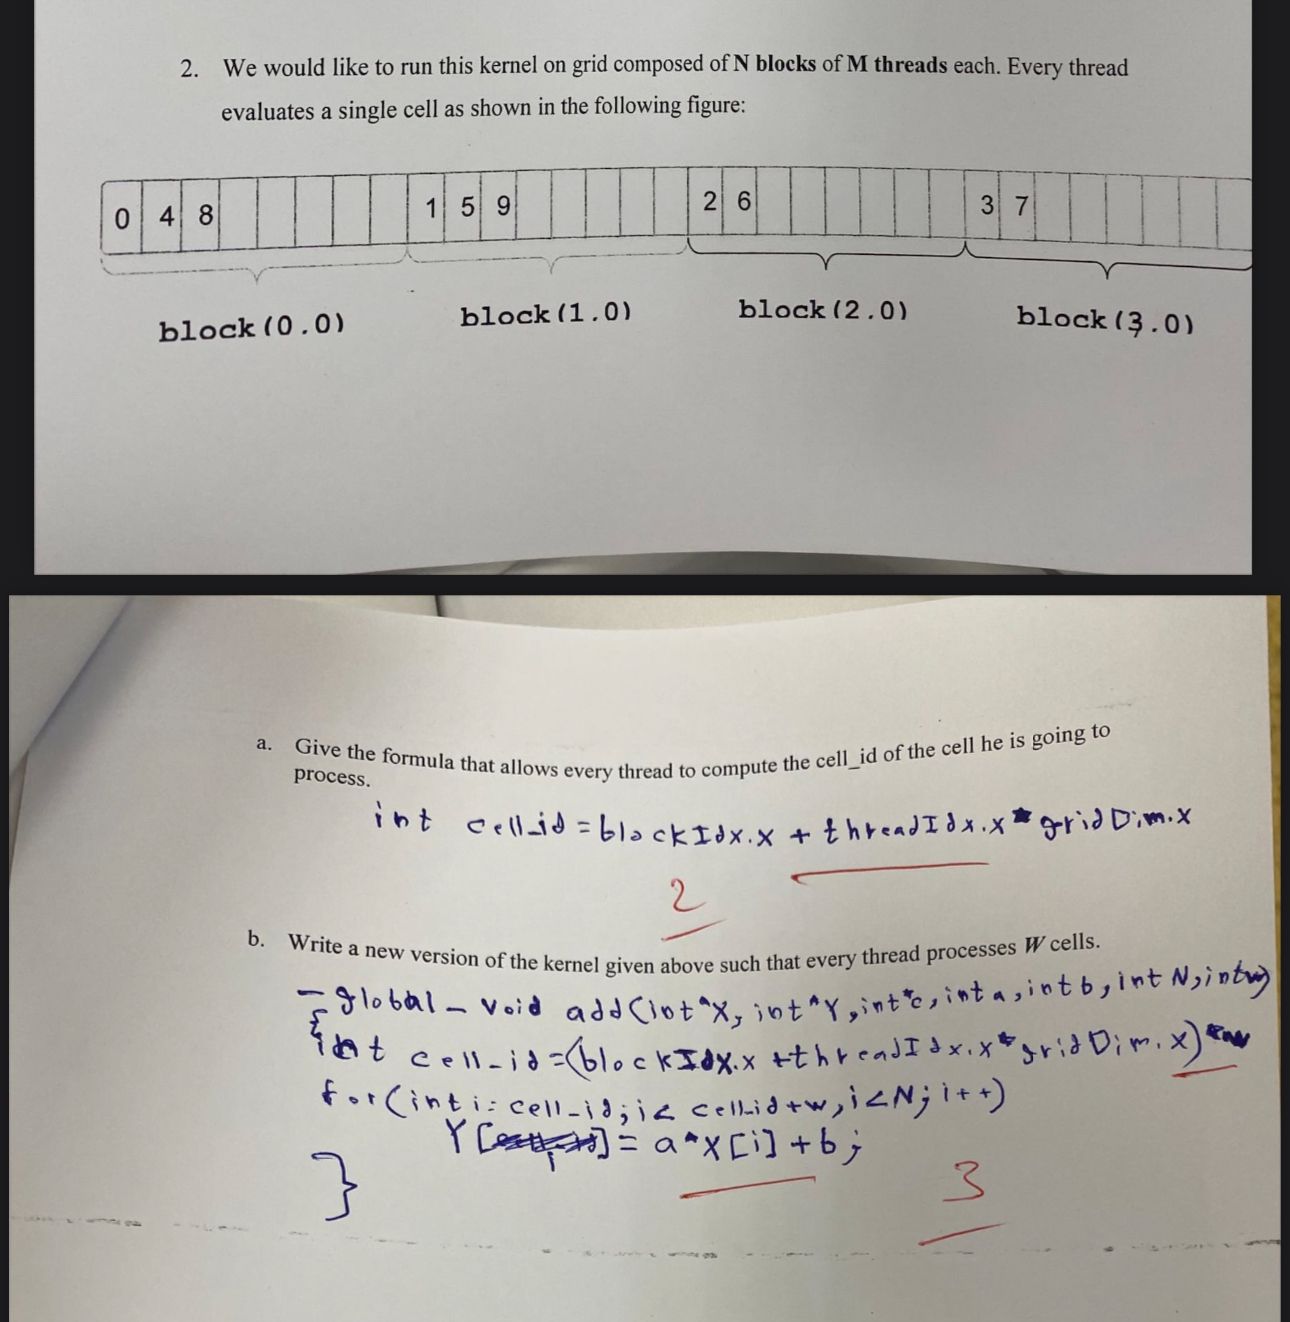 2. We would like to run this kernel on grid composed of N blocks of M threads each. Every thread
evaluates a single cell as shown in the following figure:
0 4 8 1 5 9 2 6 3 7
block(0.0) block(1.0) block(2.0) block(3.0)
a. Give the formula that allows every thread to compute the cell_id of the cell he is going to
process.
int cell_id = blockIdx.x + threadIdx.x * gridDim.x
2
b. Write a new version of the kernel given above such that every thread processes W cells.
_global_ void add(int *X, int *Y, int *c, int a, int b, int N, int w)
{
int cell_id = (blockIdx.x + threadIdx.x * gridDim.x) *w
for(int i= cell_id; i< cell_id+w, i<N; i++)
Y[i] = a*X[i] + b;
}
3